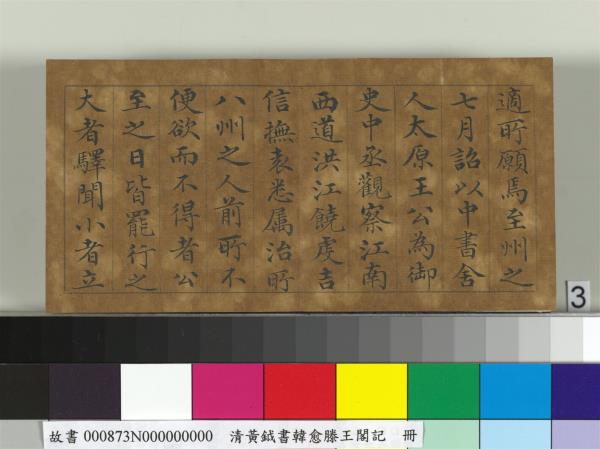 適所願焉至州之
七月詔以中書舍
人太原王公為御
史中丞觀察江南
西道洪江饒虔吉
信撫袁悉属治所
八州之人前所不
便欲而不得者公
至之日皆罷行之
大者驛聞小者立
3
故書 000873N000000000 清黃鉞書韓愈滕王閣記 冊